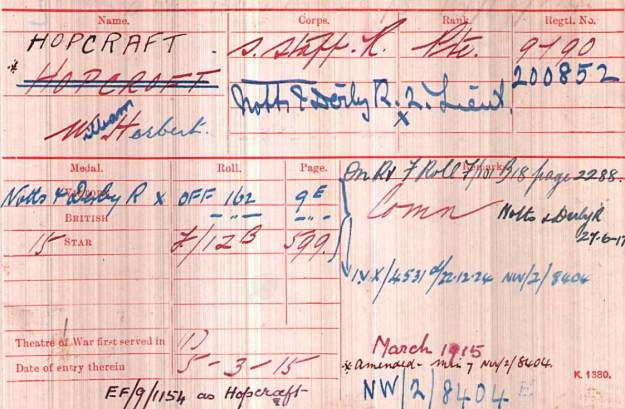 Name. Corps. Rank. Regtl. No.
HOPCRAFT. S. Staff. R. Pte. 9190
* HOPCROFT 200852
William Herbert. Notts & Derby R. x 2. Lieut.
Medal. Roll. Page. Remarks
On R F Roll F/101 B18 page 2288.
Notts & Derby R x OFF 162 9E
BRITISH -"- -"- Comn Notts & Derby R
27-6-17
15 STAR F/12B 599.
I.V.X/4531 d/22-12-24 NW/2/8404
Theatre of War first served in (1)
March 1915
Date of entry therein 5-3-15
* Amended - NW/2/8404.
K. 1380.
EF/9/1154 as Hopcraft NW/2/8404 E